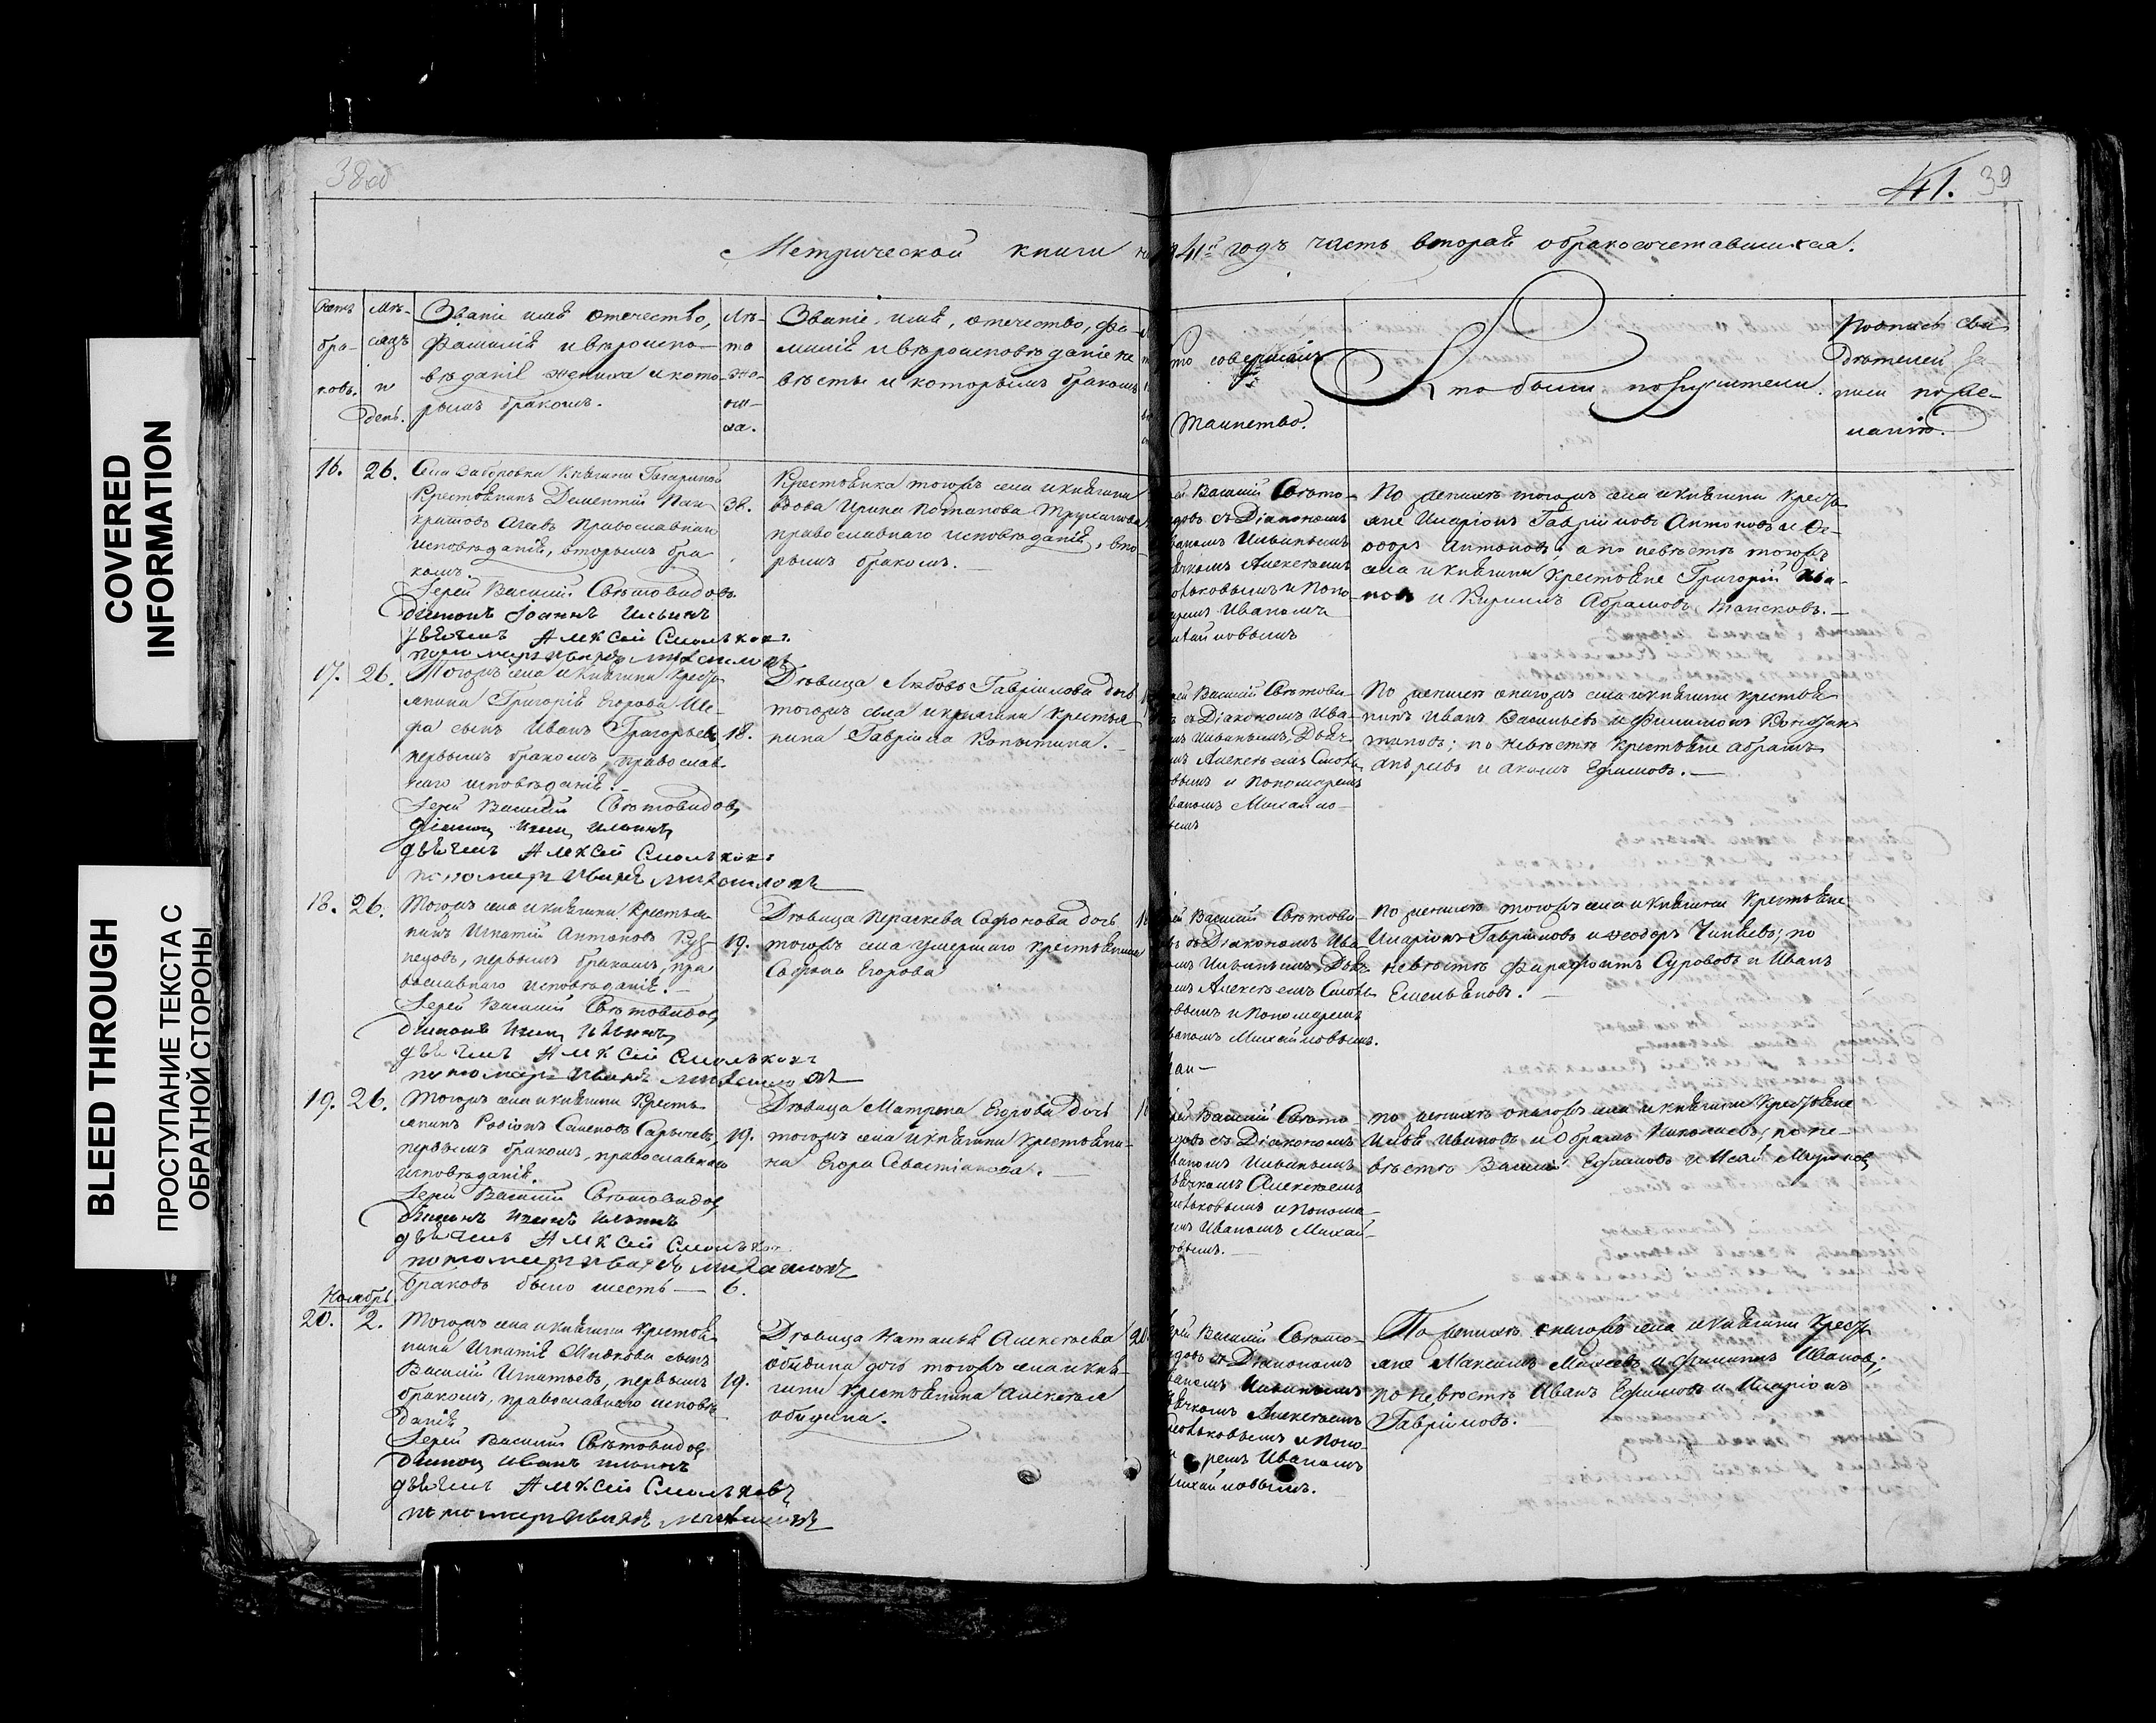 COVERED
INFORMATION
BLEED THROUGH
ПРОСТУПАНИЕ ТЕКСТА С
ОБРАТНОЙ СТОРОНЫ
38об
41. 39
Метрической книги на
41й годъ часть вторая о бракосочетавшихся.
Счетъ
бра-
ковъ.
Мѣ-
сяцъ
и
день.
Званіе имя отечество,
фамилія и вѣроиспо-
вѣданіе жениха и кото-
рымъ бракомъ.
Лѣ-
та
же-
ни-
ха.
Званіе, имя, отечество, фа-
милія и вѣроисповѣданіе не
вѣсты и которымъ бракомъ
то совершалъ
Таинство.
Кто были поручители.
Подпись сви
дѣтелей за-
писи по же-
ланію.
16. 26.
Села княгини Гагариной
Крестьянинъ Дементій Пан
кратовъ православнаго
исповѣданія, вторымъ бра
комъ.
Іерей Василій Свѣтовидовъ
діаконъ Іоаннъ Ильинъ
дьячекъ Алексей Смольков
пономарь Иванъ Михаиловъ
38.
Крестьянка тогожъ села и княгини
вдова Ирина Потапова
православнаго исповѣданія, вто-
рымъ бракомъ.
ей Василій Свѣто-
довъ съ Діакономъ
ваномъ Ильинымъ
ячкомъ Алексеемъ
ольковымъ и Поно-
аремъ Иваномъ
хайловымъ
По женихѣ тогожъ села и княгини кресть
яне Иларіонъ Гавріиловъ Антоновъ и Ѳе-
одоръ Антоновъ; а по невѣстѣ тогожъ
села и княгини крестьяне Григорій Ива-
новъ и Кириллъ Абрамовъ
17. 26.
Тогожъ села и княгини кресть
янина Григорія Егорова
сынъ Иванъ Григорьевъ
первымъ бракомъ, православ-
наго исповѣданія.
Іерей Василій Свѣтовидовъ
діаконъ Иванъ Ильинъ
дьячекъ Алексей Смольков
пономарь Иванъ Михаиловъ
18.
Дѣвица Любовь Гавріилова дочь
тогожъ села и княгини крестья-
нина Гавріила Копытина.
ей Василій Свѣтови-
съ Діакономъ Ива-
мъ Ильинымъ, Дьяч-
мъ Алексеемъ Смоль
овымъ и Пономаремъ
ваномъ Михайло-
вымъ
По женихѣ онагожъ села и княгини крестья
нинъ Иванъ Васильевъ и Филимонъ Констан
тиновъ; по невѣстѣ крестьяне Абрамъ
Андреевъ и Акимъ Ефимовъ.
18. 26.
Тогожъ села и княгини Крестья
нинъ Игнатій Антоновъ Куз
нецовъ, первымъ бракомъ, пра
вославнаго исповѣданія.
Іерей Василій Свѣтовидовъ
діаконъ Иванъ Ильинъ
дьячекъ Алексей Смольков
пономарь Иванъ Михаиловъ
19.
Дѣвица Параскева Сафонова дочь
тогожъ села умершаго крестьянина
Сафона Егорова
ей Василій Свѣтови-
въ съ Діакономъ Ива
омъ Ильинымъ, Дьяч
омъ Алексеемъ Смоль
овымъ и Пономаремъ
ваномъ Михайловымъ.
По женихѣ тогожъ села и княгини Крестьяне
Иларіонъ Гавріиловъ и Ѳеодоръ; по
невѣстѣ Ферафонтъ Сурововъ и Иванъ
Емельяновъ.
19. 26.
Тогожъ села и княгини Кресть
янинъ Родіонъ Семеновъ Сарычевъ,
первымъ бракомъ, православнаго
исповѣданія.
Іерей Василій Свѣтовидовъ
діаконъ Иванъ Ильинъ
дьячекъ Алексей Смольков
пономарь Иванъ Михаиловъ
19.
Дѣвица Матрена Егорова дочь
тогожъ села и княгини крестьяни-
на Егора Севастіанова.
ей Василій Свѣто-
довъ съ Діакономъ
ваномъ Ильинымъ
ьячкомъ Алексеемъ
ольковымъ и Понома-
емъ Иваномъ Михай-
овымъ.
По женихѣ онагожъ села и княгини Крестьяне
Илья Ивановъ и Абрамъ Николаевъ; по не-
вѣстѣ Василій Ефимовъ и Исай
Браковъ было шесть — 6.
Ноябрь
20. 2.
Тогожъ села и княгини Крестья
нина Игнатія сынъ
Василій Игнатьевъ, первымъ
бракомъ, православнаго исповѣ
данія
Іерей Василій Свѣтовидовъ
діаконъ Иванъ Ильинъ
дьячекъ Алексей Смольковъ
пономарь Иванъ Михаиловъ
19.
Дѣвица Наталья Алексеева
Обидина дочь тогожъ села и кня-
гини крестьянина Алексея
Обидина.
20
рей Василій Свѣто-
довъ съ Діакономъ
ваномъ Ильинымъ
ячкомъ Алексеемъ
мольковымъ и Поно-
ремъ Иваномъ
ихайловымъ.
По женихѣ онагожъ села и княгини кресть
яне Максимъ Моисеевъ и Филиппъ Ивановъ;
по невѣстѣ Иванъ Ефимовъ и Иларіонъ
Гавріиловъ.